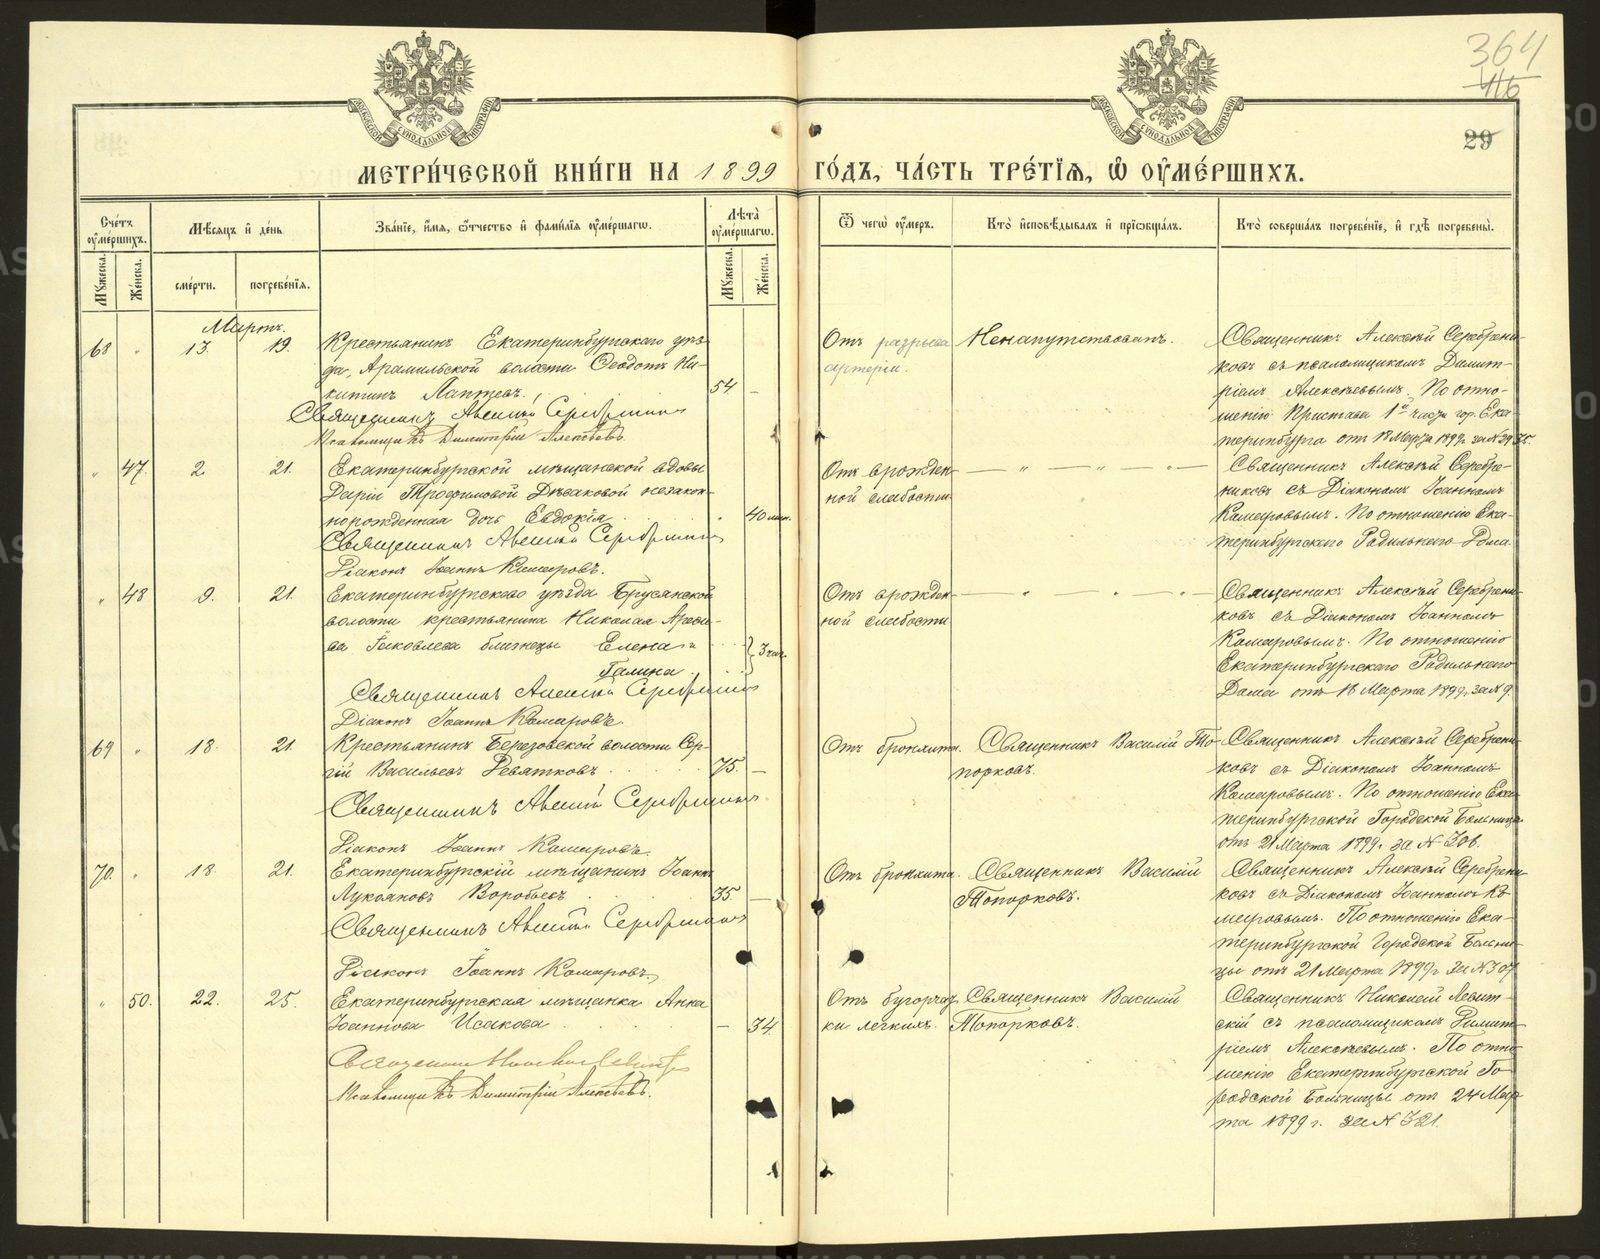 364
416
29
МЕТРИ́ЧЕСКОЙ КНИ́ГИ НА 1899
ГО́ДЪ, ЧА́СТЬ ТРЕ́ТІѦ, Ѡ҆ ОУ҆МЕ́РШИХЪ.
Сче́тъ оу҆ме́ршихъ.
Мѣ́сяцъ и҆ де́нь
Зва́ніе, и҆́мя, ѻ҆́тчество и҆ фами́лїя оу҆ме́ршагѡ.
Лѣ́та оу҆ме́ршагѡ.
Мꙋ́жеска.
Же́нска.
сме́рти.
погребе́нїѧ.
Мꙋ́жеска.
Же́нска.
Ѿ чегѡ̀ оу҆́меръ.
Кто̀ и҆сповѣ́дывалъ и҆ прїѡбща́лъ.
Кто̀ соверша́лъ погребе́нїе, и҆ гдѣ̀ погребены̀.
Мартъ.
68 " 13. 19.
Крестьянинъ Екатеринбургскаго уѣз-
да, Арамильской волости Ѳеодотъ Ни-
китинъ Лаптевъ.
54. –
Священникъ Алексій Серебренниковъ
Псаломщикъ Димитрій Алексѣевъ.
Отъ разрыва
артеріи.
Ненапутствованъ.
Священникъ Алексѣй Серебрени-
ковъ съ псаломщикомъ Димит-
ріемъ Алексѣевымъ. По отно-
шенію Пристава 1й части гор. Ека-
теринбурга отъ 18 Марта 1899г. за № 2935.
" 47. 2 21.
Екатеринбургской мѣщанской вдовы
Даріи Трофимовой незакон-
норожденная дочь Евдокія
40 мин.
Священникъ Алексій Серебренниковъ
Діаконъ Іоаннъ Комаровъ.
Отъ врожден-
ной слабости
— " — " — " —
Священникъ Алексѣй Серебре-
никовъ съ Діакономъ Іоанномъ
Комаровымъ. По отношенію Ека-
теринбургскаго Родильнаго Дома
" 48 9. 21.
Екатеринбургскаго уѣзда Брусянской
волости крестьянина Николая
Яковлева близнецы Елена и
Галина
3 час.
Священникъ Алексій Серебренниковъ
Діаконъ Іоаннъ Комаровъ.
Отъ врожден-
ной слабости
— " — " — " —
Священникъ Алексѣй Серебрени-
ковъ съ Діакономъ Іоанномъ
Комаровымъ. По отношенію
Екатеринбургскаго Родильнаго
Дома отъ 16 Марта 1899г. за № 9.
69 " 18. 21.
Крестьянинъ Березовской волости Сер-
гій Васильевъ Девятковъ
75. –
Священникъ Алексій Серебренниковъ
Діаконъ Іоаннъ Комаровъ.
Отъ бронхита.
Священникъ Василій То-
порковъ.
Священникъ Алексѣй Серебрени-
ковъ съ Діакономъ Іоанномъ
Комаровымъ. По отношенію Ека-
теринбургской Городской Больницы
отъ 21 Марта 1899г. за № 306.
70. " 18. 21.
Екатеринбургскій мѣщанинъ Іоаннъ
Лукіановъ Воробьевъ
35. –
Священникъ Алексій Серебренниковъ
Діаконъ Іоаннъ Комаровъ.
Отъ бронхита.
Священникъ Василій
Топорковъ.
Священникъ Алексѣй Серебрени-
ковъ съ Діакономъ Іоанномъ Ко-
маровымъ. По отношенію Ека-
теринбургской Городской Больни-
цы отъ 21 Марта 1899г. за № 307
" 50. 22. 25.
Екатеринбургская мѣщанка Анна
Іоаннова Исакова
– 34.
Священникъ Николай Левитскій
Псаломщикъ Димитрій Алексѣевъ.
Отъ бугорчат-
ки легкихъ.
Священникъ Василій
Топорковъ.
Священникъ Николай Левит-
скій съ псаломщикомъ Димит-
ріемъ Алексѣевымъ. По отно-
шенію Екатеринбургской Го-
родской Больницы отъ 24 Мар-
та 1899 г. за № 321.